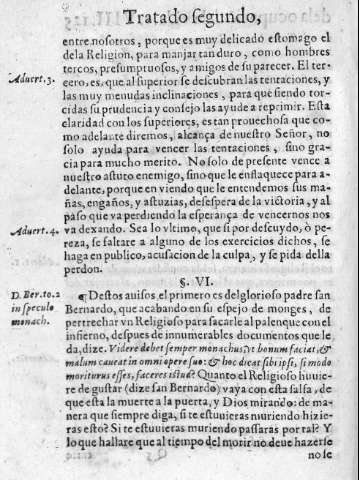 Tratado segundo,
entre nosotros, porque es muy delicado estomago el
dela Religion, para manjar tan duro, como hombres
tercos, presumptuosos, y amigos de su parecer. El ter-
Aduert. 3.
cero, es, que al superior se descubran las tentaciones, y
las muy menudas inclinaciones, para que siendo tor-
cidas su prudencia y consejo las ayude a reprimir. Esta
claridad con los superiores, es tan prouechosa que co-
mo adelante diremos, alcança de nuestro Señor, no
solo ayuda para vencer las tentaciones, sino gra-
cia para mucho merito. No solo de presente vence a
nuestro astuto enemigo, sino que le enflaquece para a-
delante, porque en viendo que le entendemos sus ma-
ñas, engaños, y astuzias, desespera de la victoria, y al
paso que va perdiendo la esperança de vencernos nos
Aduert. 4.
va dexando. Sea lo vltimo, que si por descuydo, ò pe-
reza, se faltare a alguno de los exercicios dichos, se
haga en publico, acusacion de la culpa, y se pida della
perdon.
§. VI.
D. Ber. to. 2
in speculo
monach.
¶ Destos auisos, el primero es del glorioso padre san
Bernardo, que acabando en su espejo de monges, de
pertrechar vn Religioso para sacarle al palenque con el
infierno, despues de innumerables documentos que le
da, dize. Videre debet semper monachus, vt bonum faciat, &
malum caueat in omni opere suo: & hoc dicat sibi ipsi, si modo
moriturus esses, faceres istud? Quanto el Religioso huuie-
re de gustar (dize san Bernardo) vaya con esta salsa, de
que esta la muerte a la puerta, y Dios mirando: de ma-
nera que siempre diga, si te estuuieras muriendo hizie-
ras esto? Si te estuuieras muriendo passaras por tal? Y
lo que hallare que al tiempo del morir no deue hazerse
no le